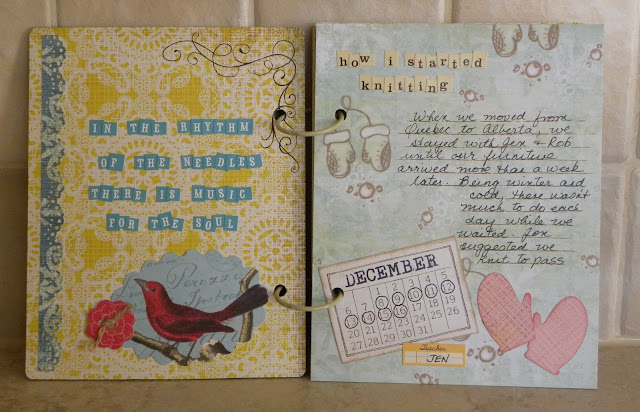 IN THE RHYTHM
OF THE NEEDLES
THERE IS MUSIC
FOR THE SOUL
how i started
knitting
When we moved from
Quebec to Alberta, we
stayed with Jen & Rob
until our furniture
arrived more than a week
later. Being winter and
cold, there wasn't
much to do each
day while we
waited. Jen
suggested we
knit to pass
DECEMBER
1 2 3 4 5
6 7 8 9 10 11 12
13 14 15 16 17 18 19
20 21 22 23 24 25 26
27 28 29 30 31
Teacher
JEN